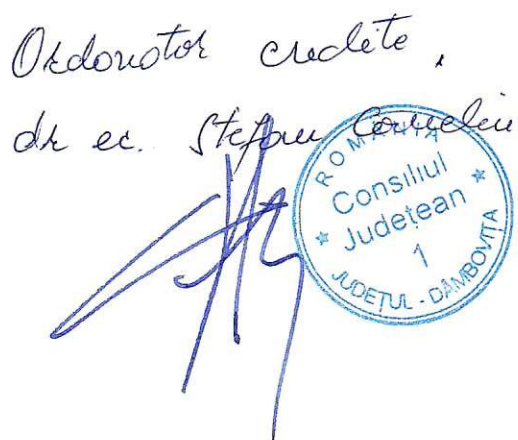 Ordonator credite,
dr ec. Ștefan Corneliu
ROMÂNIA
Consiliul
* Județean *
1
JUDEȚUL - DÂMBOVIȚA